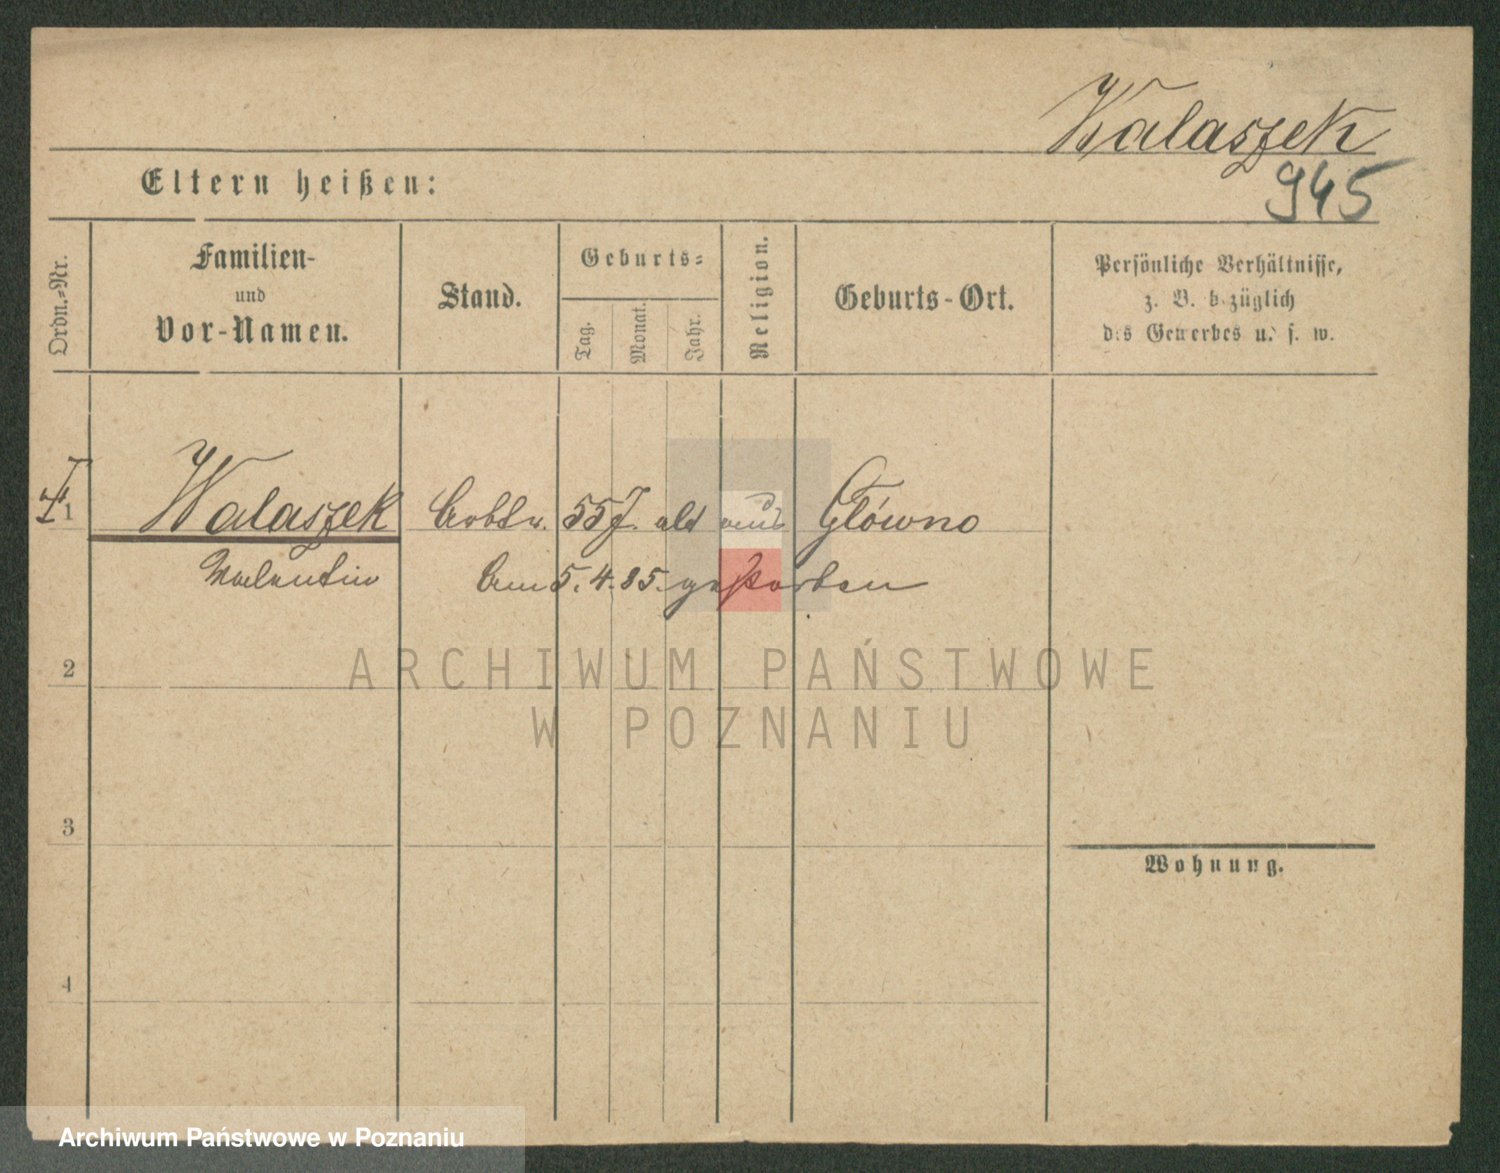 Walaszek
945
Eltern heißen:
Ordn.-Nr.
Familien-
und
Vor-Namen.
Stand.
Geburts-
Tag.
Monat.
Jahr.
Religion.
Geburts-Ort.
Persönliche Verhältnisse,
z. B. bezüglich
des Gewerbes u. s. w.
1 Walaszek Arbtr. 55 J. alt aus Główno
Valentin Am 5.4.85. gestorben
2
ARCHIWUM PAŃSTWOWE
W POZNANIU
3
Wohnung.
4
Archiwum Państwowe w Poznaniu